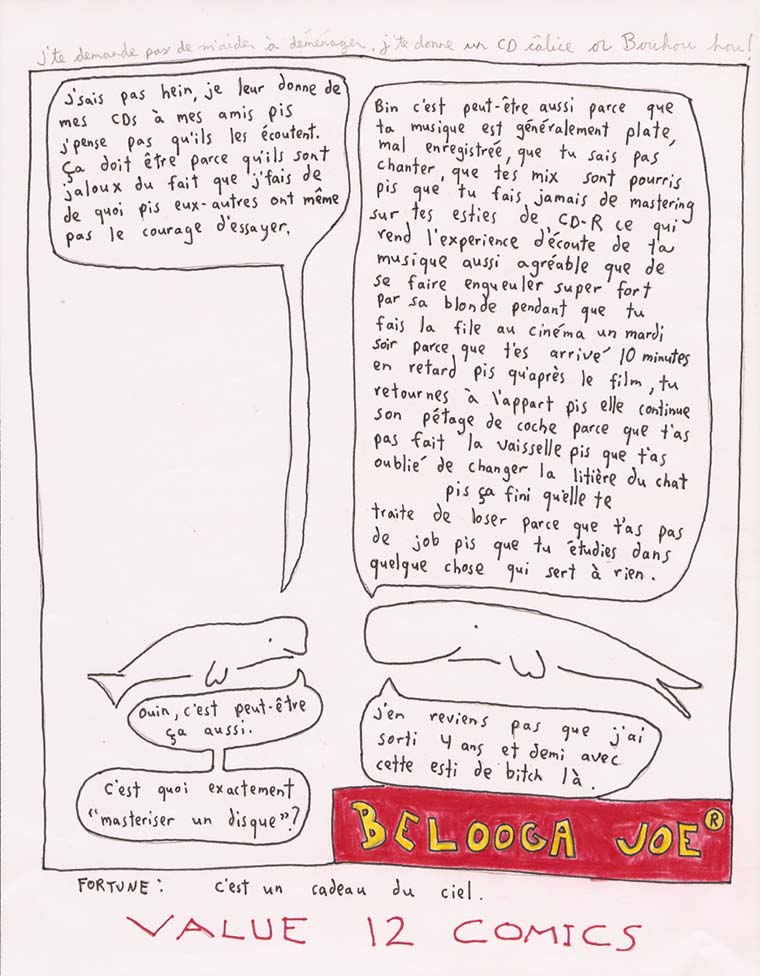 j'te demande pas de m'aider à déménager, j'te donne un CD câlice or Bouhou hou!
J'sais pas hein, je leur donne de
mes CDs à mes amis pis
j'pense pas qu'ils les écoutent.
Ça doit être parce qu'ils sont
jaloux du fait que j'fais de
de quoi pis eux-autres ont même
pas le courage d'essayer.
Bin c'est peut-être aussi parce que
ta musique est généralement plate,
mal enregistrée, que tu sais pas
chanter, que tes mix sont pourris
pis que tu fais jamais de mastering
sur tes esties de CD-R ce qui
rend l'experience d'écoute de ta
musique aussi agréable que de
se faire engueuler super fort
par sa blonde pendant que tu
fais la file au cinéma un mardi
soir parce que t'es arrivé 10 minutes
en retard pis qu'après le film, tu
retournes à l'appart pis elle continue
son pétage de coche parce que t'as
pas fait la vaisselle pis que t'as
oublié de changer la litière du chat
pis ça fini qu'elle te
traite de loser parce que t'as pas
de job pis que tu étudies dans
quelque chose qui sert à rien.
Ouin, c'est peut-être
ça aussi.
C'est quoi exactement
"masteriser un disque"?
J'en reviens pas que j'ai
sorti 4 ans et demi avec
cette esti de bitch là.
BELOOGA JOE®
FORTUNE: c'est un cadeau du ciel.
VALUE 12 COMICS